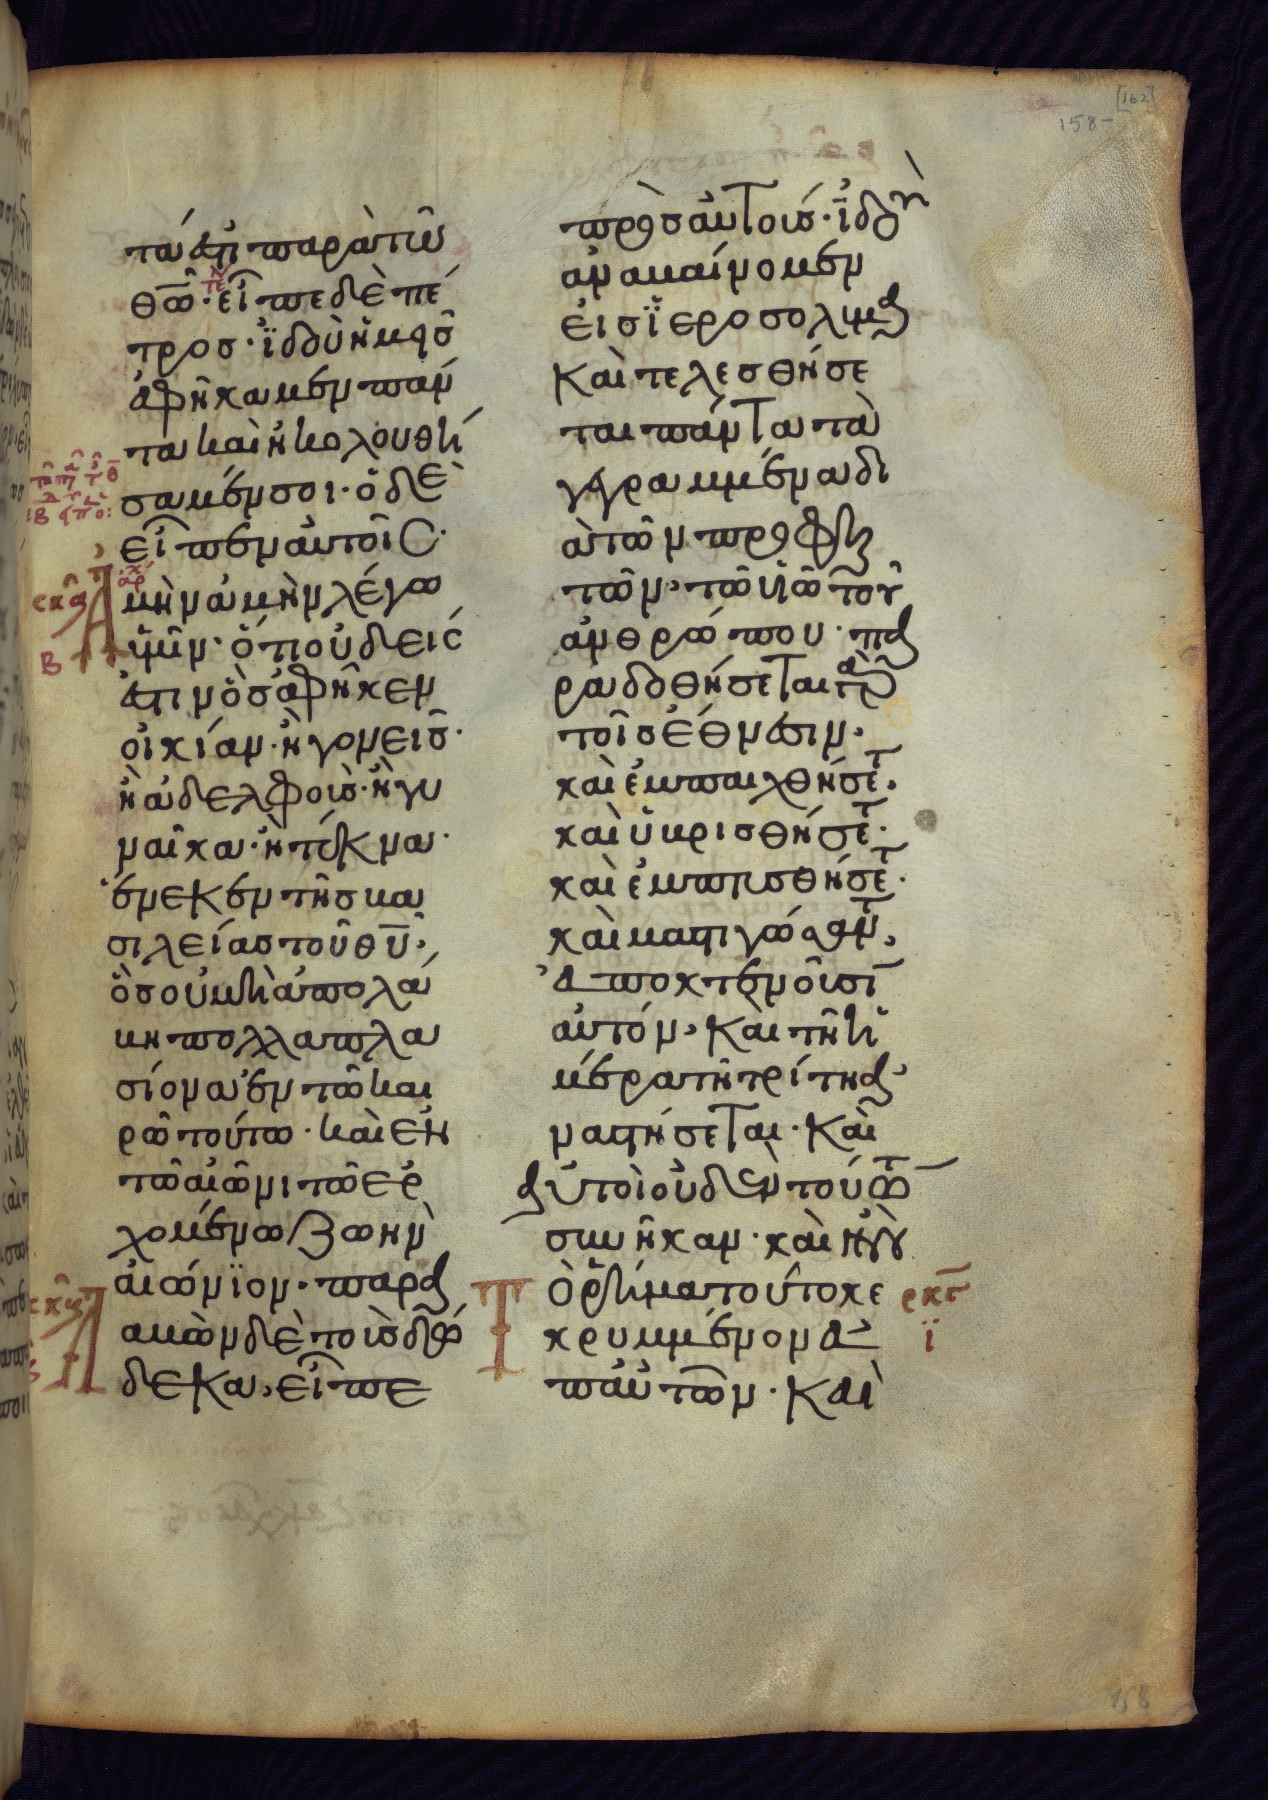 τά ἐστι παρὰ τῶ
θω̅· εἶπε δὲ πέ
τροσ· ἰδοὺ ἡμεῖσ
ἀφήκαμεν πάν
τα καὶ ἠκολουθή
σαμέν σοι· ὁ δὲ
εἶπεν αὐτοῖς·
Ἀμὴν ἀμὴν λέγω
ὑμῖν· ὅτι οὐδείς
ἐστιν ὃσ ἀφῆκεν
οἰκίαν· ἢ γονεῖσ·
ἢ ἀδελφοὺσ· ἢ γυ
ναῖκα· ἢ τέκνα·
ἕνεκεν τῆσ βα
σιλείασ τοῦ θυ̅·
ὃσ οὐ μὴ ἀπολά
βη πολλαπλα
σίονα ἐν τῶ και
ρῶ τούτω· καὶ ἐν
τῶ αἰῶνι τῶ ἐρ
χομένω ζωὴν
αἰώνϊον· παρα
λαβὼν δὲ τοὺσ δώ
δεκα, εἶπε
πρὸσ αὐτούσ· ἰδοὺ
ἀναβαίνομεν
εἰσ ϊεροσόλυμα
καὶ τελεσθήσε
ται πάντα τὰ
γεγραμμένα δι
ὰ τῶν προφη
τῶν, τῶ υἱῶ τοῦ
ἀνθρώπου· πα
ραδοθήσεται γὰρ
τοῖσ ἔθνεσιν·
καὶ ἐμπαιχθήσετ
καὶ ὑβρισθήσετ·
καὶ ἐμπτυσθήσετ·
καὶ μαστιγώσαντ,
ἀποκτενοῦσϊ
αὐτόν, καὶ τῆ ἡ
μέρα τῆ τρίτη ἀ
ναστήσεται· καὶ
αὐτοὶ οὐδὲν τούτω
συνῆκαν· καὶ ἦν
Τὸ ῥῆμα τοῦτο κε
κρυμμένον ἀ
π' αὐτῶν· καὶ